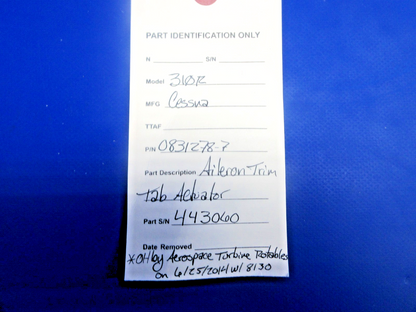 PART IDENTIFICATION ONLY
N S/N
Model 310R
MFG Cessna
TTAF
P/N 0831278-7
Part Description Aileron Trim
Tab Actuator
Part S/N 443060
Date Removed
*OH by Aerospace Turbine Rotables
on 6/25/2014 W/ 8130